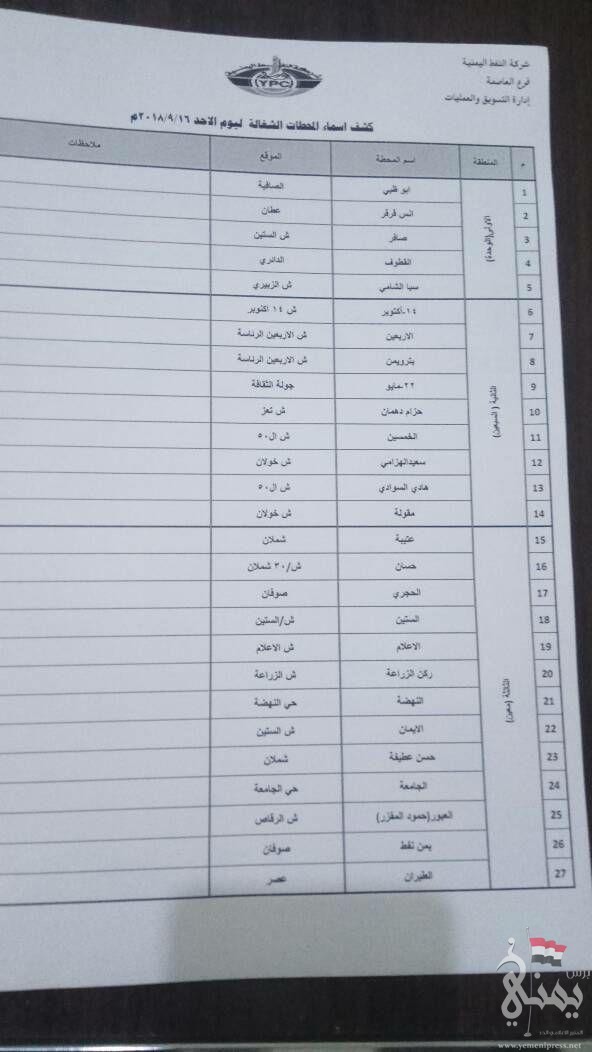 شركة النفط اليمنية
فرع العاصمة
إدارة التسويق والعمليات
YPC
كشف اسماء المحطات الشغالة ليوم الاحد ٢٠١٨/٩/١٦م
م المنطقة اسم المحطة الموقع ملاحظات
الاولى(الوحدة)
1 ابو ظبي الصافية
2 انس فرفر عطان
3 صافر ش الستين
4 القطوف الدائري
5 سبا الشامي ش الزبيري
الثانية (السبعين)
6 ١٤-أكتوبر ش ١٤ اكتوبر
7 الاربعين ش الاربعين الرئاسة
8 بترويمن ش الاربعين الرئاسة
9 ٢٢-مايو جولة الثقافة
10 حزام دهمان ش تعز
11 الخمسين ش ال٥٠
12 سعيدالهزامي ش خولان
13 هادي السوادي ش ال٥٠
14 مقولة ش خولان
الثالثة (معين)
15 عتيبة شملان
16 حسان ش/٣٠ شملان
17 الحجري صوفان
18 الستين ش/الستين
19 الاعلام ش الاعلام
20 ركن الزراعة ش الزراعة
21 النهضة حي النهضة
22 الايمان ش الستين
23 حسن عطيفة شملان
24 الجامعة حي الجامعة
25 العبور(حمود المقزر) ش الرقاص
26 يمن نفط صوفان
27 الطيران عصر
يمني برس
www.yemenipress.net